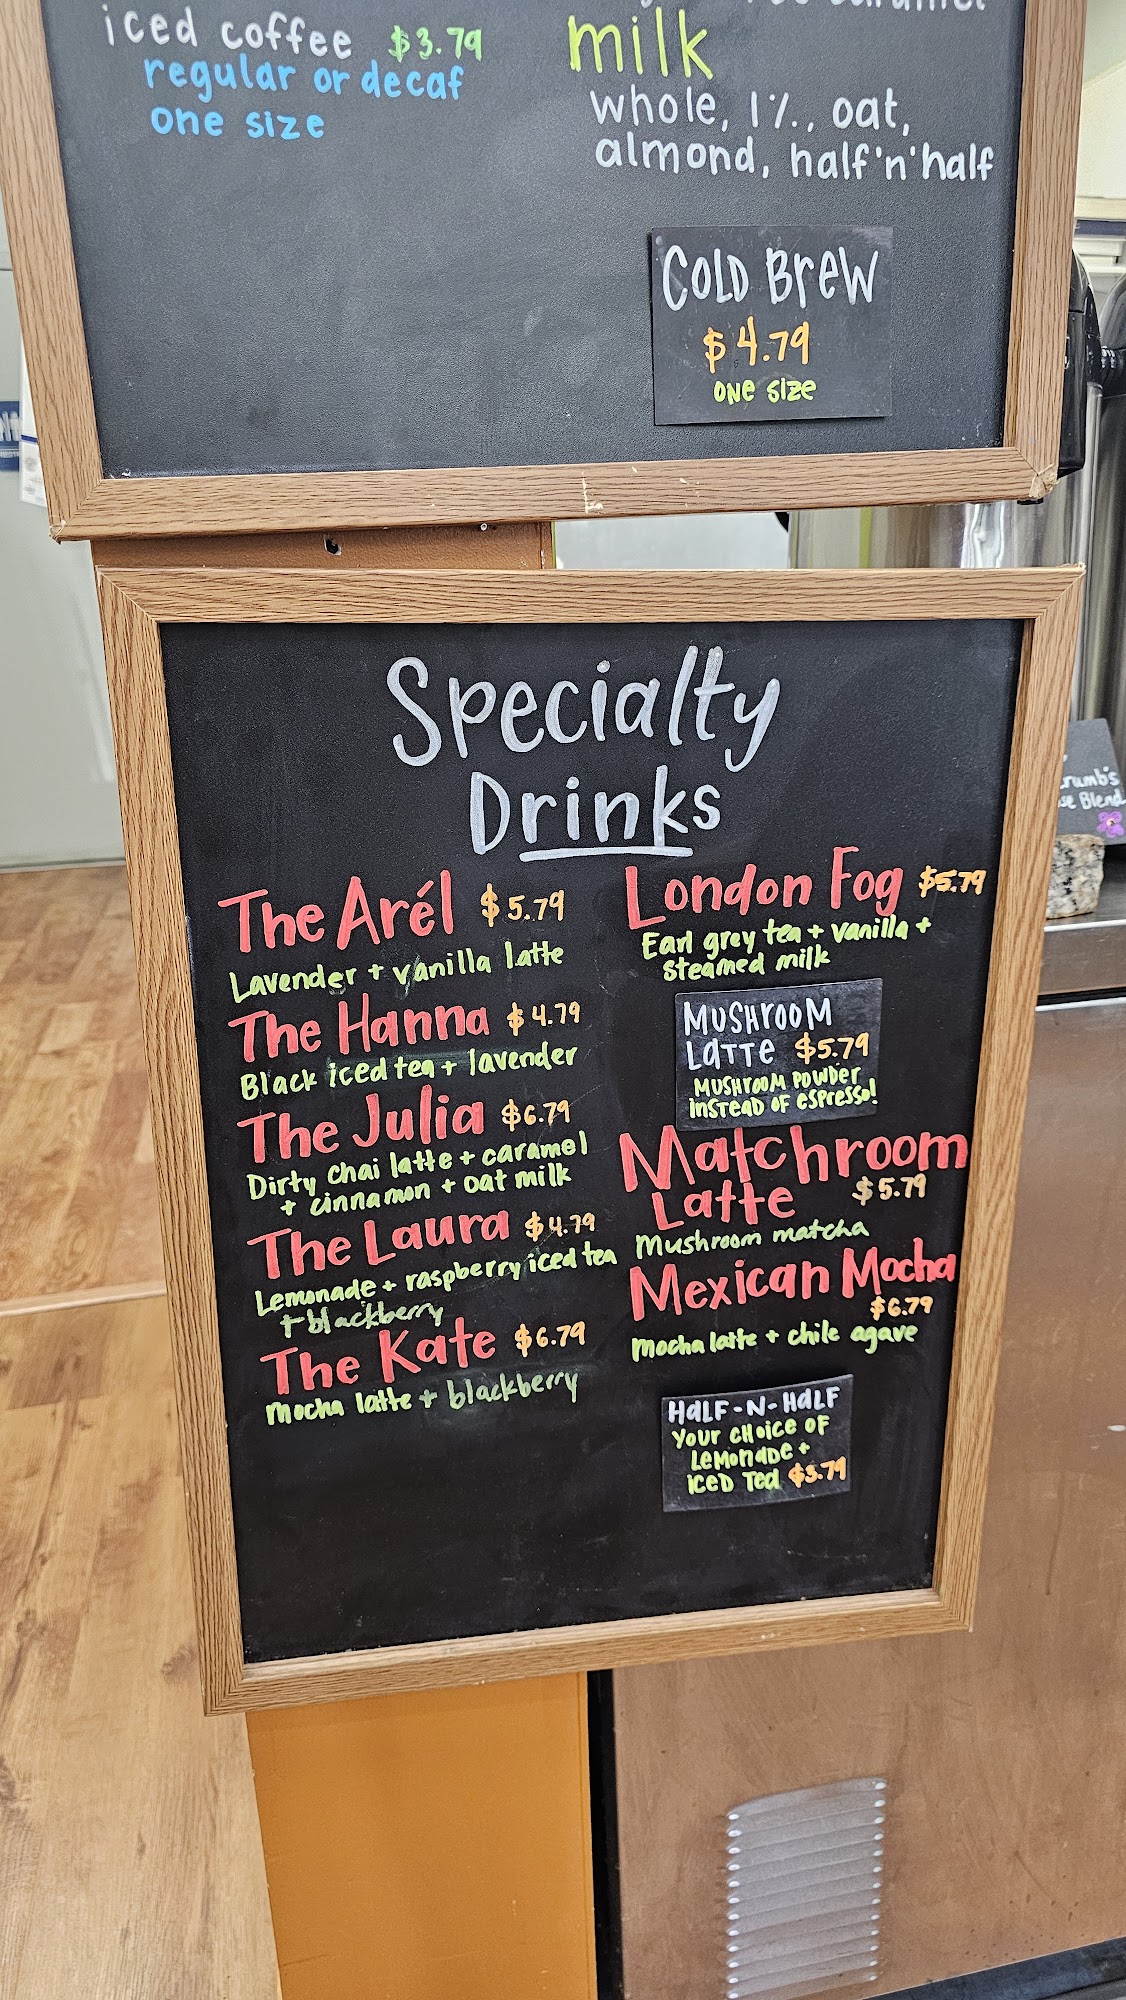 iced coffee $3.79
regular or decaf
one size
caramel
milk
whole, 1%, oat,
almond, half'n'half
COLD BreW
$4.79
ONe SIZe
Specialty
Drinks
The Arél $5.79
Lavender + vanilla latte
The Hanna $4.79
Black iced tea + lavender
The Julia $6.79
Dirty chai latte + caramel
+ cinnamon + oat milk
The Laura $4.79
Lemonade + raspberry iced tea
+ blackberry
The Kate $6.79
Mocha latte + blackberry
London Fog $5.79
Earl grey tea + vanilla +
steamed milk
MUSHrOOM
LaTTe $5.79
MUSHrOOM POWDer
INSTeaD OF eSPreSSO!
Matchroom
Latte $5.79
Mushroom matcha
Mexican Mocha
$6.79
Mocha latte + chile agave
HaLF-N-HaLF
YOUr CHOICe OF
LeMONaDe +
ICeD Tea $3.79
rumb's
se Blend